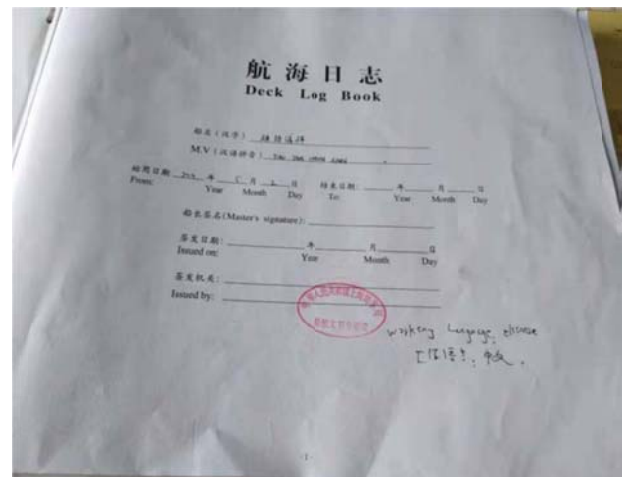 航海日志
Deck Log Book
船名（汉字）
M.V（汉语拼音）
始用日期 年 5 月 日 结束日期: 年 月 日
From: Year Month Day To: Year Month Day
船长签名(Master's signature):
签发日期: 年 月 日
Issued on: Year Month Day
签发机关:
Issued by:
working Language: chinese
工作语言: 中文.
-1-